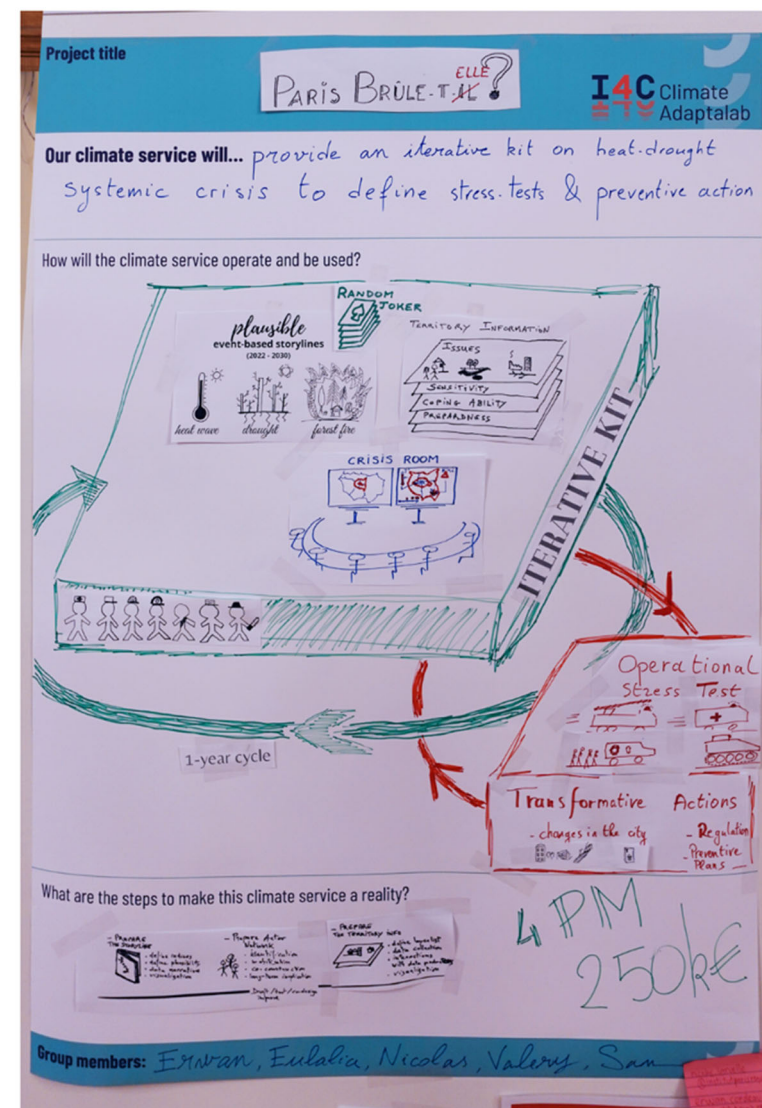 Project title
PARIS BRÛLE-T-IL ELLE?
I4C Climate
Adaptalab
Our climate service will... provide an iterative kit on heat-drought
systemic crisis to define stress-tests & preventive action
How will the climate service operate and be used?
RANDOM
JOKER
plausible
event-based storylines
(2022 - 2030)
heat wave drought forest fire
TERRITORY INFORMATION
ISSUES
SENSITIVITY
COPING ABILITY
PREPARDNESS
CRISIS ROOM
ITERATIVE KIT
Operational
Stress Test
1-year cycle
Transformative Actions
- changes in the city
- Regulation
- Preventive
Plans
What are the steps to make this climate service a reality?
- PREPARE
THE STORYLINE
- define indices
- define plausibility
- data narrative
- visualisation
- Prepare Actor
Network
- identification
- co-construction
- long-term implication
- PREPARE
THE TERRITORY INFO
- data collection
- interactions
with data producers
- visualisation
4 PM
250k€
Group members: Erwan, Eulalia, Nicolas, Valery, Sam